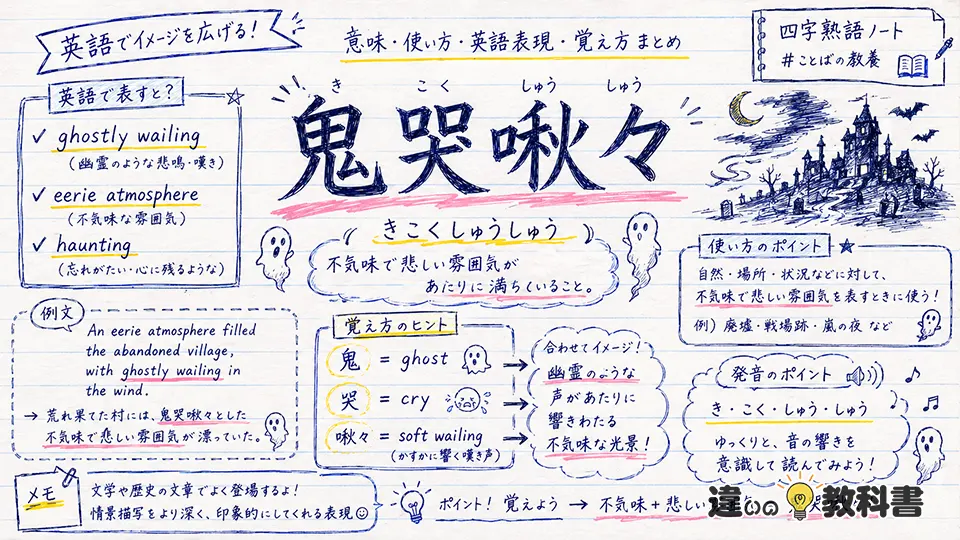 英語でイメージを広げる!
意味・使い方・英語表現・覚え方 まとめ
四字熟語ノート
#ことばの教養
英語で表すと?
✓ ghostly wailing
(幽霊のような悲鳴・嘆き)
✓ eerie atmosphere
(不気味な雰囲気)
✓ haunting
(忘れがたい・心に残るような)
き こく しゅう しゅう
鬼哭啾々
きこくしゅうしゅう
不気味で悲しい雰囲気が
あたりに満ちていること。
使い方のポイント
自然・場所・状況などに対して、
不気味で悲しい雰囲気を表すときに使う!
例) 廃墟・戦場跡・嵐の夜 など
例文
An eerie atmosphere filled
the abandoned village,
with ghostly wailing in
the wind.
→ 荒れ果てた村には、鬼哭啾々とした
不気味で悲しい雰囲気が漂っていた。
覚え方のヒント
鬼 = ghost
哭 = cry
啾々 = soft wailing
(かすかに響く嘆き声)
合わせてイメージ!
幽霊のような
声があたりに
響きわたる
不気味な光景!
発音のポイント
き・こく・しゅう・しゅう
ゆっくりと、音の響きを
意識して読んでみよう!
メモ
文学や歴史の文章でよく登場するよ!
情景描写をより深く、印象的にしてくれる表現
ポイント! 覚えよう → 不気味+悲しい
違いの教科書